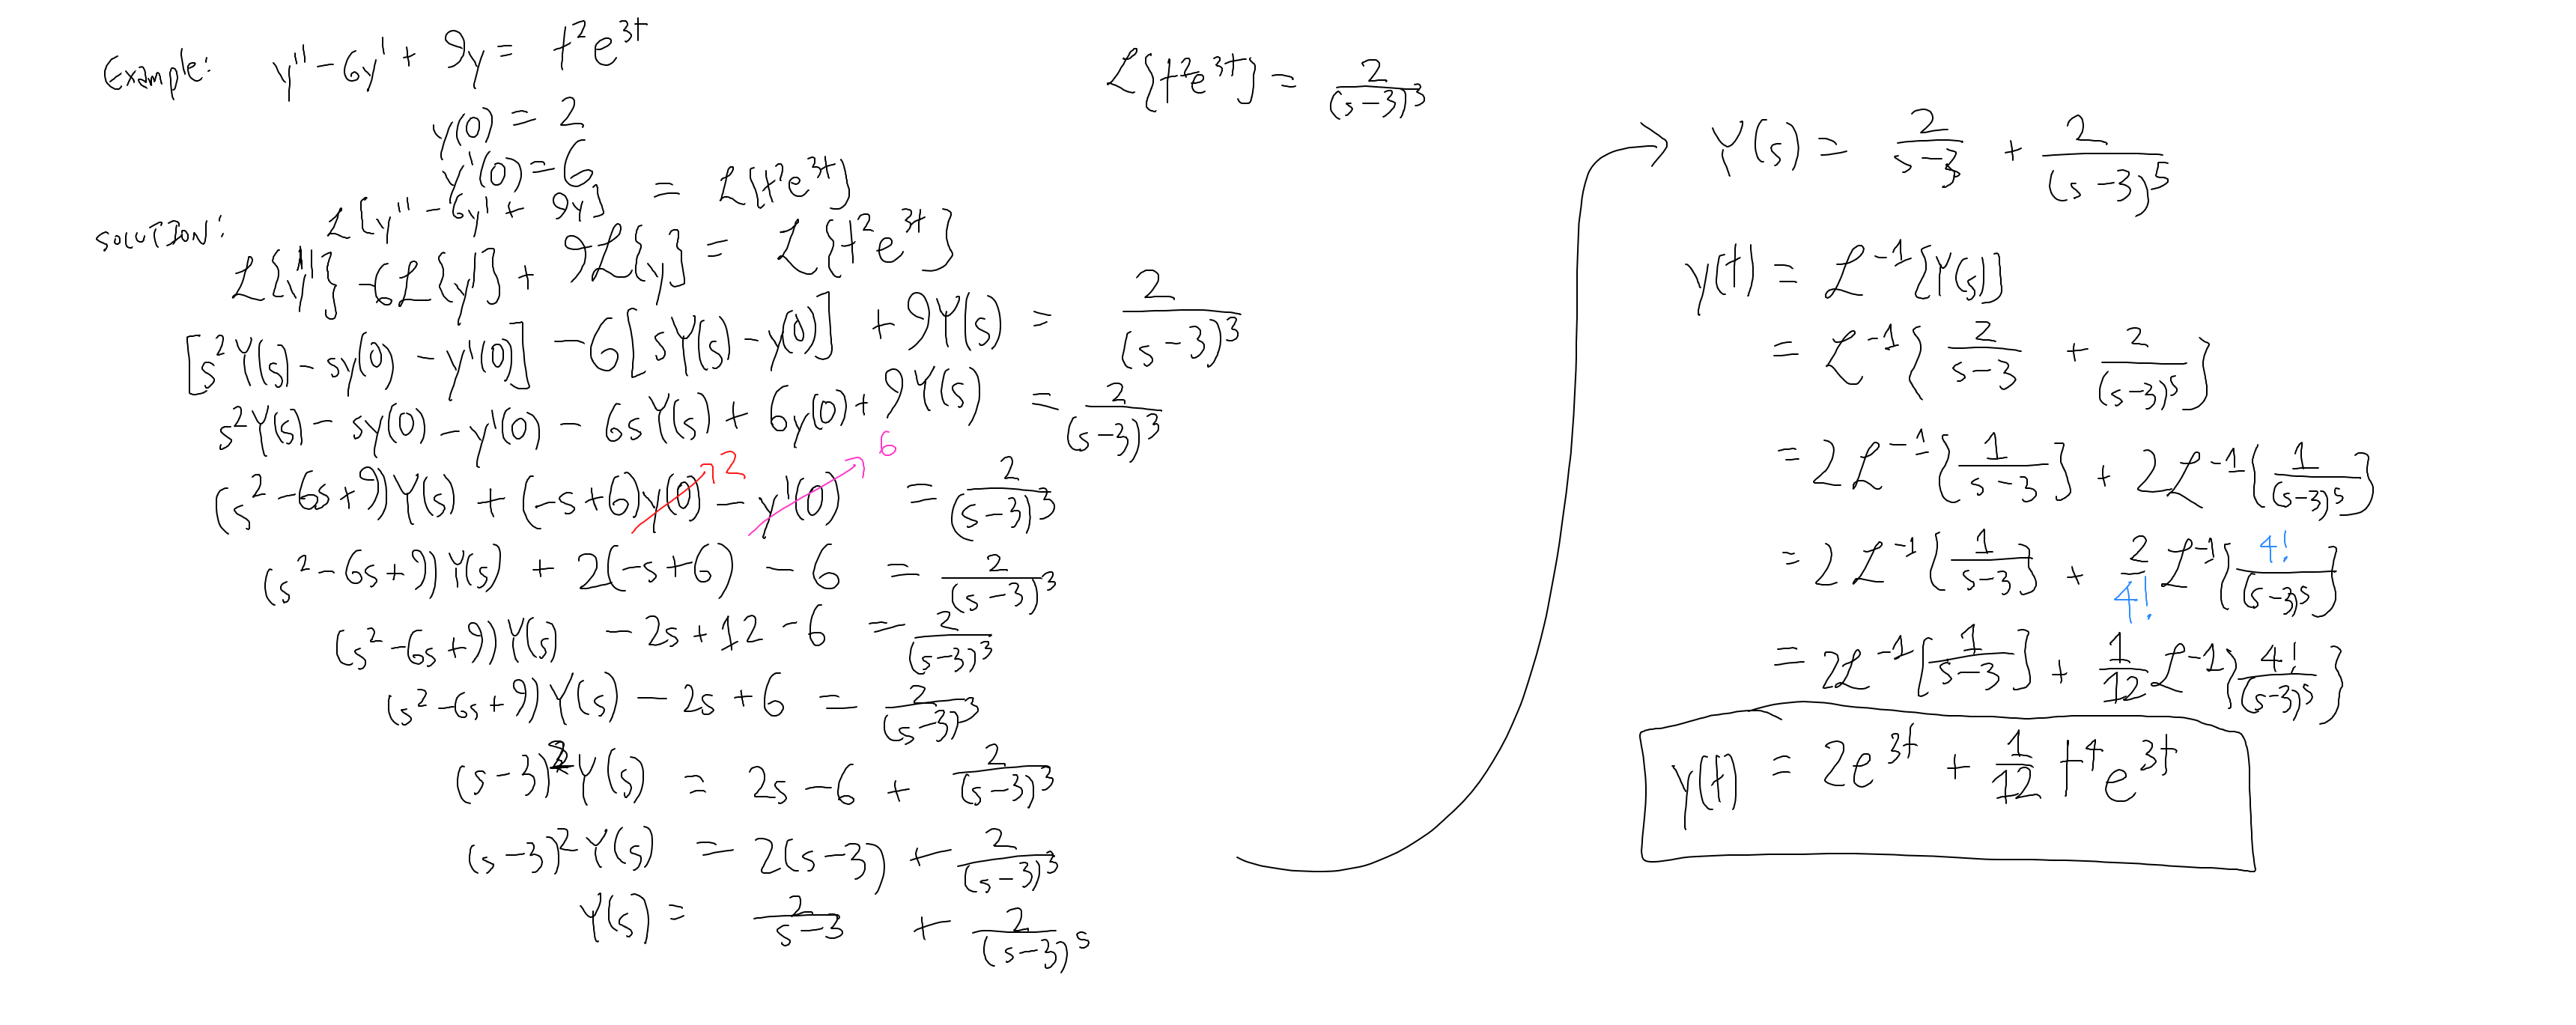 Example: y'' - 6y' + 9y = t²e^{3t}
y(0) = 2
y'(0) = 6
SOLUTION: ℒ{y'' - 6y' + 9y} = ℒ{t²e^{3t}}
ℒ{y''} - 6ℒ{y'} + 9ℒ{y} = ℒ{t²e^{3t}}
[s²Y(s) - sy(0) - y'(0)] - 6[sY(s) - y(0)] + 9Y(s) = 2/(s-3)³
s²Y(s) - sy(0) - y'(0) - 6sY(s) + 6y(0) + 9Y(s) = 2/(s-3)³
(s² - 6s + 9)Y(s) + (-s+6)y(0) → 2 - y'(0) → 6 = 2/(s-3)³
(s² - 6s + 9)Y(s) + 2(-s+6) - 6 = 2/(s-3)³
(s² - 6s + 9)Y(s) - 2s + 12 - 6 = 2/(s-3)³
(s² - 6s + 9)Y(s) - 2s + 6 = 2/(s-3)³
(s-3)²Y(s) = 2s - 6 + 2/(s-3)³
(s-3)²Y(s) = 2(s-3) + 2/(s-3)³
Y(s) = 2/(s-3) + 2/(s-3)⁵
ℒ{t²e^{3t}} = 2/(s-3)³
→ Y(s) = 2/(s-3) + 2/(s-3)⁵
y(t) = ℒ⁻¹{Y(s)}
= ℒ⁻¹{2/(s-3) + 2/(s-3)⁵}
= 2ℒ⁻¹{1/(s-3)} + 2ℒ⁻¹{1/(s-3)⁵}
= 2ℒ⁻¹{1/(s-3)} + 2/4! ℒ⁻¹{4!/(s-3)⁵}
= 2ℒ⁻¹{1/(s-3)} + 1/12 ℒ⁻¹{4!/(s-3)⁵}
y(t) = 2e^{3t} + 1/12 t⁴e^{3t}